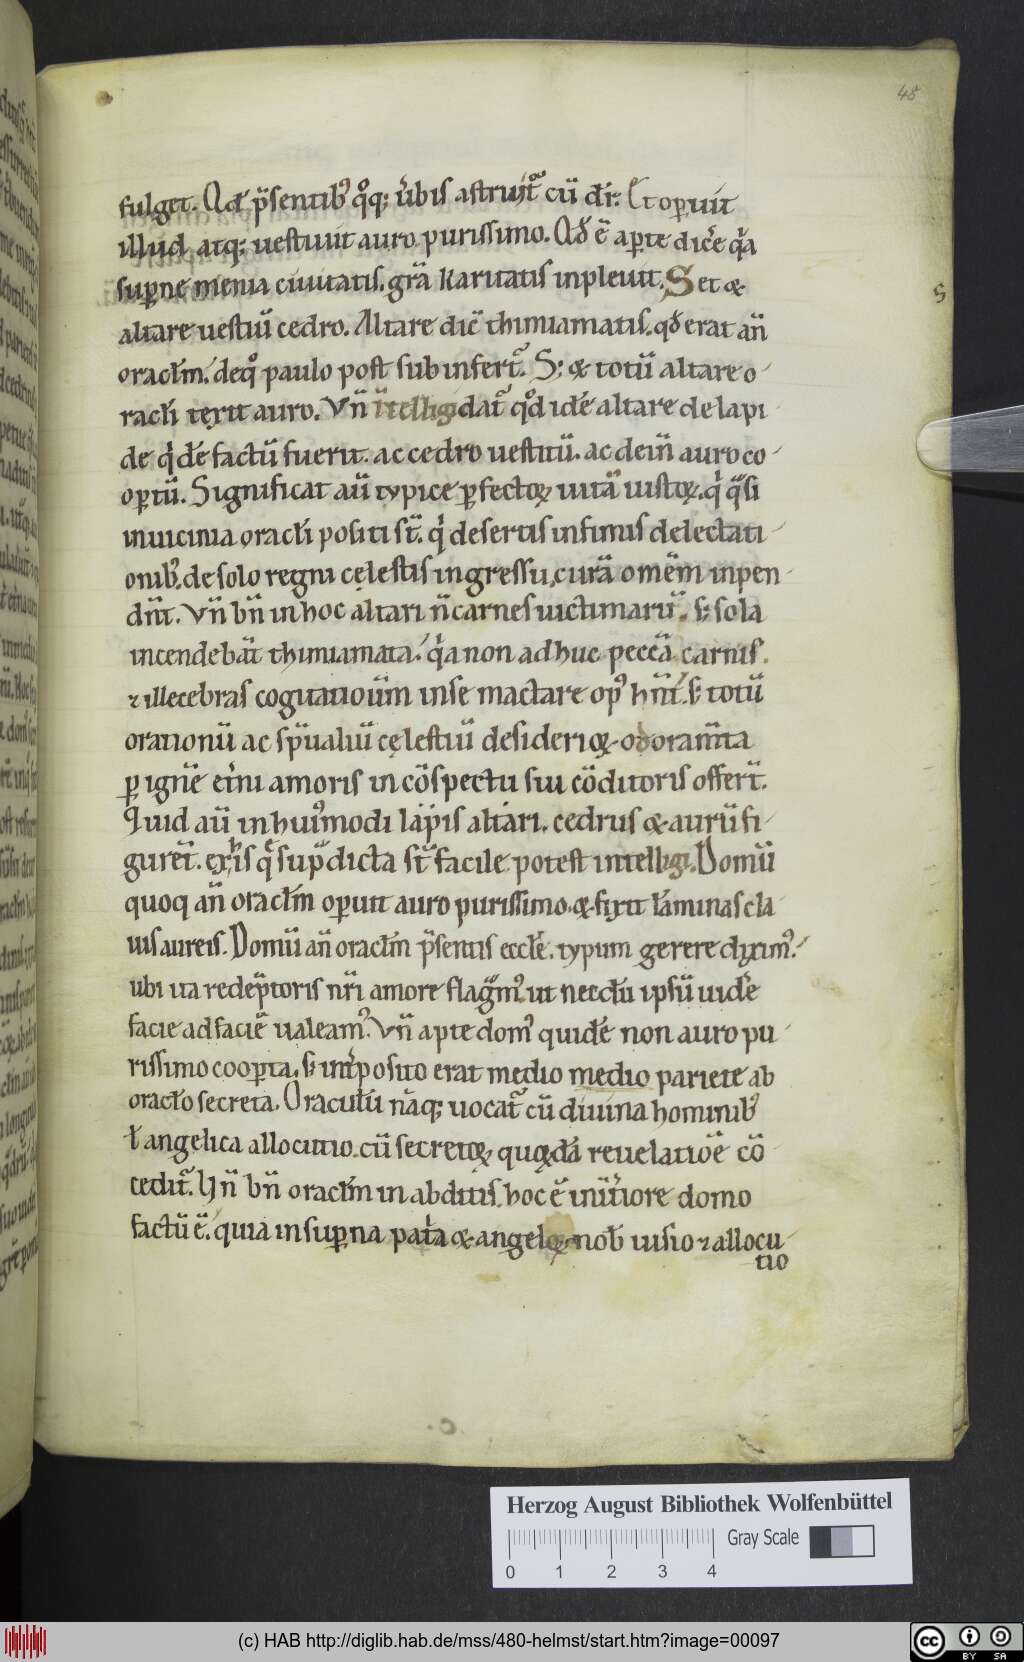 48
fulget. Qď p̄sentib; q̊q; ūbis astruit᷑ cū dr̄: Et oꝑuit
illud atq; uestiuit auro purissimo. Qđ ē aꝑte dicē q̄a
suꝑnę męnia ciuitatis. grā karitatis inpleuit. Set &
altare uestiū cedro. Altare dic̄ thimiamatis. qđ erat an̄
oracłm. deq̊ paulo post sub infert᷑. S; & totū altare o
racłi texit auro. Vn̄ intelligi dat᷑ q̊d idē altare de lapi
de q̇dē factū fuerit. ac cedro uestitū. ac dein̄ auro co
oꝑtū. Significat aū typice ꝑfectoꝝ uitā iustoꝝ. q̇ q̄si
in uicinia oracłi positi st̄. q̇ desertis infimis delectati
onib;. de solo regni cęlestis ingressu, curā omēm inpen
dn̄t. Vn̄ bn̄ in hoc altari n̄ carnes uictimarū. s; sola
incendebāt thimiamata. q̇a non adhuc peccā carnis.
⁊ illecebras cogitationū in se mactare op᷒ hn̄t. s; totū
orationū ac sp̄ualiū cęlestiū desiderioꝝ. odoram̄ta
ꝑ ignē et̄ni amoris in cōspectu sui cōditoris offert᷑.
Quid aū in hui᷒modi lapis altari. cedrus & aurū fi
guret᷑. ex his q̄ supᵃdicta st̄ facile potest intelligi. Domū
quoq an̄ oracłm oꝑuit auro purissimo. & fixit laminas cla
uis aureis. Domū an̄ oracłm p̄sentis ecclē. typum gerere diximꝰ.
ubi ita redēptoris nr̄i amore flagᵃmꝰ ut necdū ipsū uidē
facie ad faciē ualeamꝰ. Vn̄ apte domꝰ quidē non auro pu
rissimo cooꝑta. s; int̄posito erat medio medio pariete ab
oracło secreta. Oraculū nāq; uocat᷑ cū diuina hominib;
ł angelica allocutio. cū secretoꝝ quoꝝdā reuelatiōe cō
cedit᷑. Vn̄ bn̄ oracłm in abditis. hoc ē in int̄iore domo
factū ē. quia in suꝑna pat̍a & angeloꝝ nob̄ uisio ⁊ allocu
tio
S
Herzog August Bibliothek Wolfenbüttel
Gray Scale
0 1 2 3 4
(c) HAB http://diglib.hab.de/mss/480-helmst/start.htm?image=00097
cc BY SA